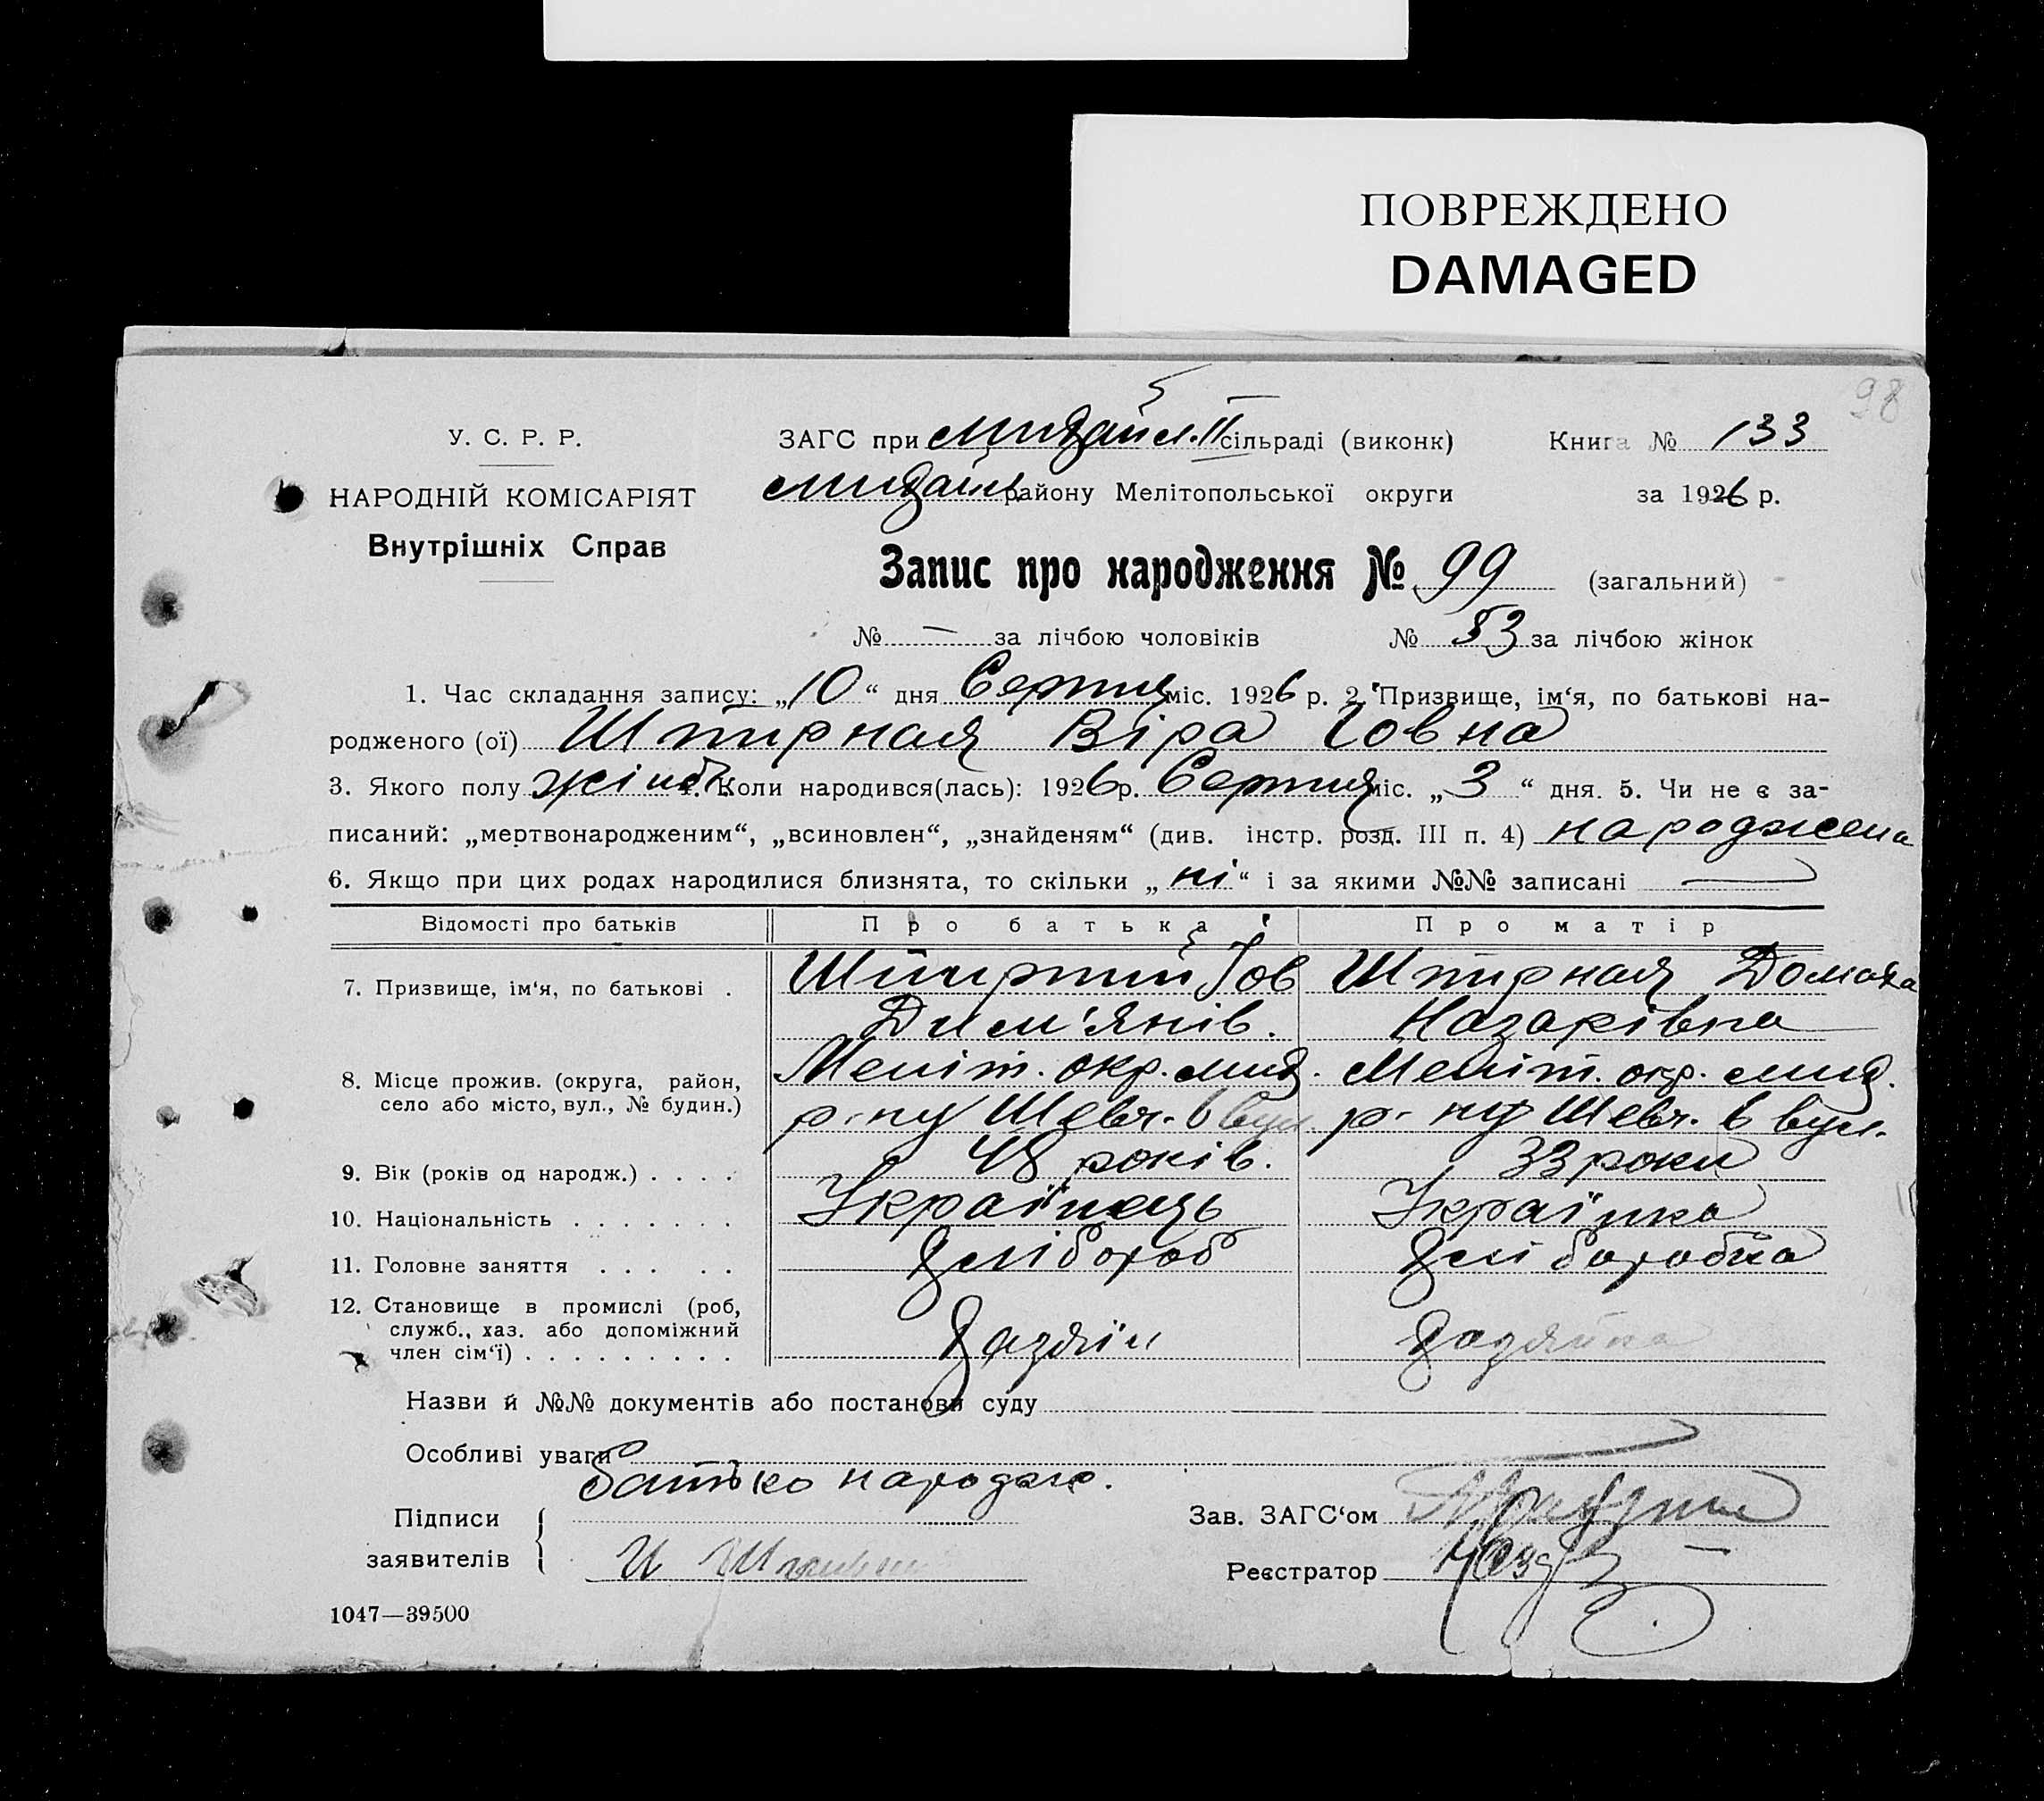 ПОВРЕЖДЕНО
DAMAGED
98
У. С. Р. Р.
НАРОДНІЙ КОМІСАРІЯТ
Внутрішніх Справ
ЗАГС при Михайл. II сільраді (виконк)
Книга № 133
Михайл району Мелітопольської округи
за 1926 р.
Запис про народження № 99 (загальний)
№ — за лічбою чоловіків № 53 за лічбою жінок
1. Час складання запису: „10“ дня Серпня міс. 1926 р. 2. Призвище, ім‘я, по батькові на-
родженого (ої) Штирная Віра Іовна
3. Якого полу жіноч. 4. Коли народився(лась): 1926 р. Серпня міс. „3“ дня. 5. Чи не є за-
писаний: „мертвонародженим“, „всиновлен“, „знайденям“ (див. інстр. розд. III п. 4) народжена
6. Якщо при цих родах народилися близнята, то скільки „ні“ і за якими №№ записані —
Відомості про батьків Про батька Про матір
7. Призвище, ім‘я, по батькові . Іов Штирная Домаха
Дим'янів. Назарівна
8. Місце прожив. (округа, район, село або місто, вул., № будин.) Меліт. окр. Мих. Меліт. окр. Мих.
р-ну Шевч. 6 вул. р-ну Шевч. 6 вул.
9. Вік (років од народж.) . . . . 48 років. 33 роки
10. Національність . . . . . . . Українець Українка
11. Головне заняття . . . . . Хлібороб Хліборобка
12. Становище в промислі (роб, служб., хаз. або допоміжний член сім‘ї) . . . . . . . . . Хазяїн Хазяйка
Назви й №№ документів або постанови суду
Особливі уваги
батько народже.
Підписи
заявителів
Зав. ЗАГС‘ом
Реєстратор
1047—39500